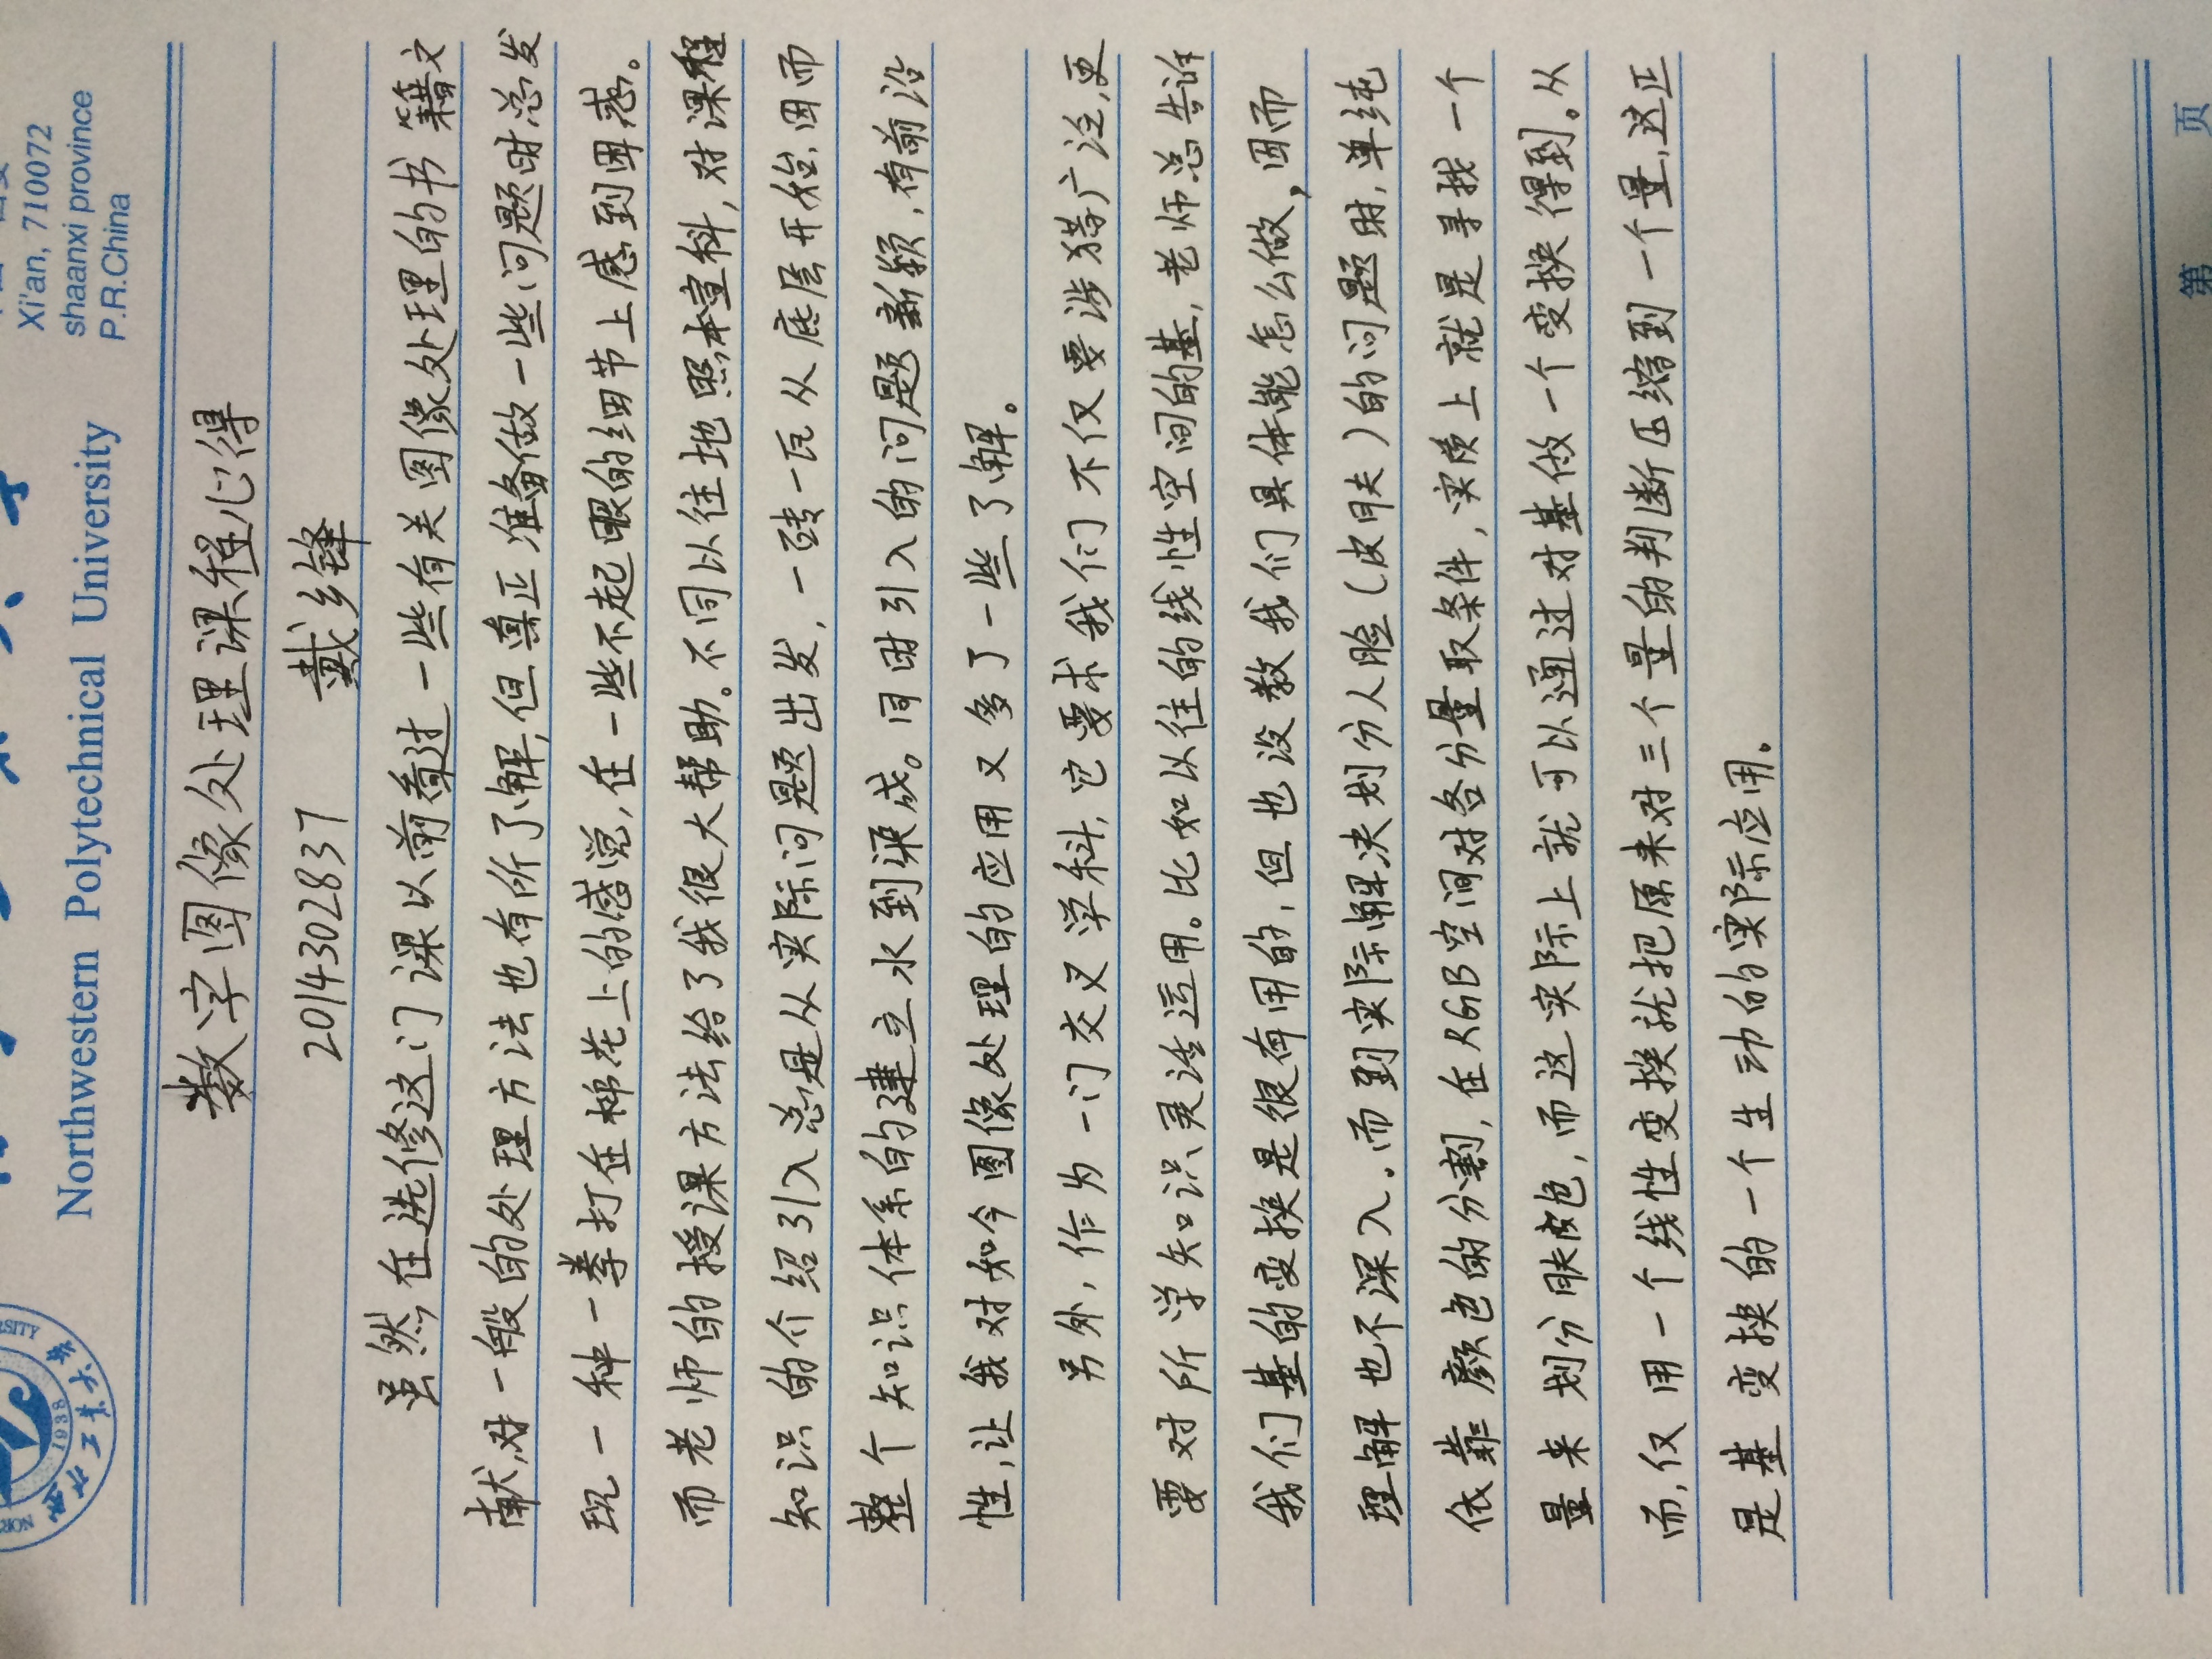 Xi'an, 710072
shaanxi province
P.R.China
Northwestern Polytechnical University
1938
西北工业大学
数字图像处理课程心得
2014302837 戴乡锋
虽然在选修这门课以前看过一些有关图像处理的书籍文
献,对一般的处理方法也有所了解,但真正准备做一些问题时总发
现一种一拳打在棉花上的感觉,在一些不起眼的细节上感到困惑。
而老师的授课方法给了我很大帮助。不同以往地照本宣科,对课程
知识的介绍引入总是从实际问题出发,一砖一瓦从底层开始,因而
整个知识体系的建立水到渠成。同时引入的问题新颖,有前沿
性,让我对如今图像处理的应用又多了一些了解。
另外,作为一门交叉学科,它要求我们不仅要涉猎广泛,更
要对所学知识灵活运用。比如以往的线性空间的基,老师总告诉
我们基的变换是很有用的,但也没教我们具体能怎么做,因而
理解也不深入.而到实际解决划分人脸(皮肤)的问题时,单纯
依靠颜色的分割,在RGB空间对各分量取条件,实质上就是寻找一个
量来划分肤色,而这实际上就可以通过对基做一个变换得到。从
而,仅用一个线性变换就把原来对三个量的判断压缩到一个量,这正
是基变换的一个生动的实际应用。
第 页